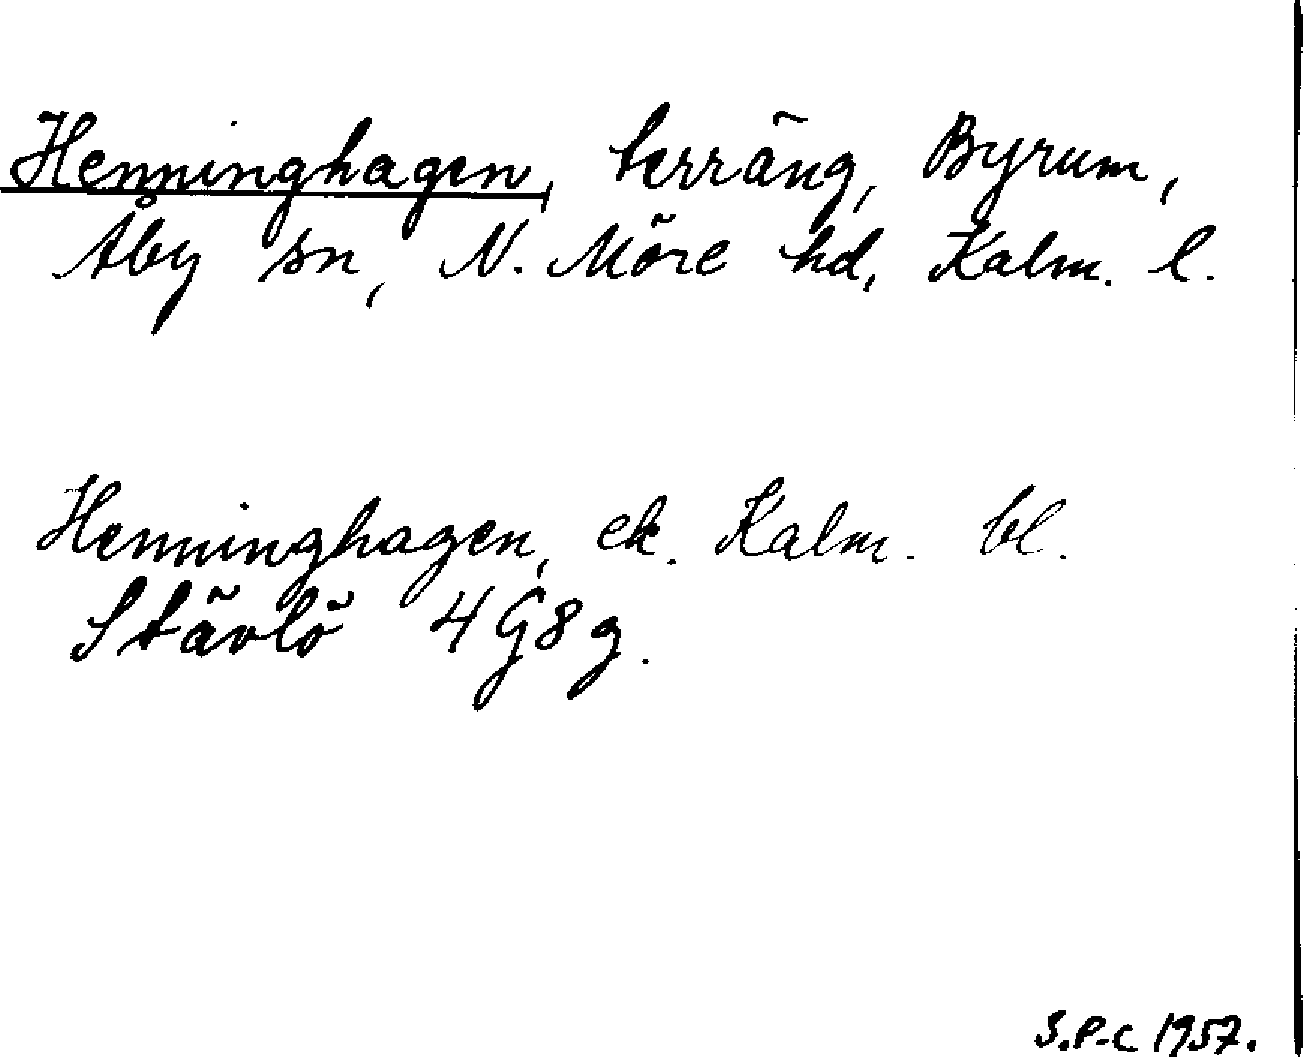 Henninghagen, terräng, Byrum,
Åby sn, N. Möre hd, Kalm. l.
Henninghagen, ek. Kalm. bl.
Stävlö 4G8g.
S.P-C 1957.